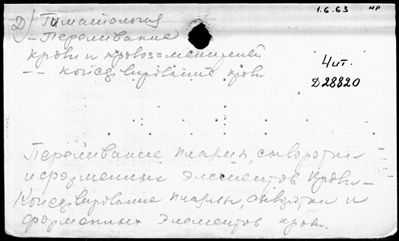 1.6.63 НР
Д) Гематология
– Переливание
крови и кровозаменителей
-- консервирование крови
Чит.
D28820
Переливание плазмы, сыворотки
и форменных элементов крови –
Консервирование плазмы, сыворотки и
форменных элементов крови.